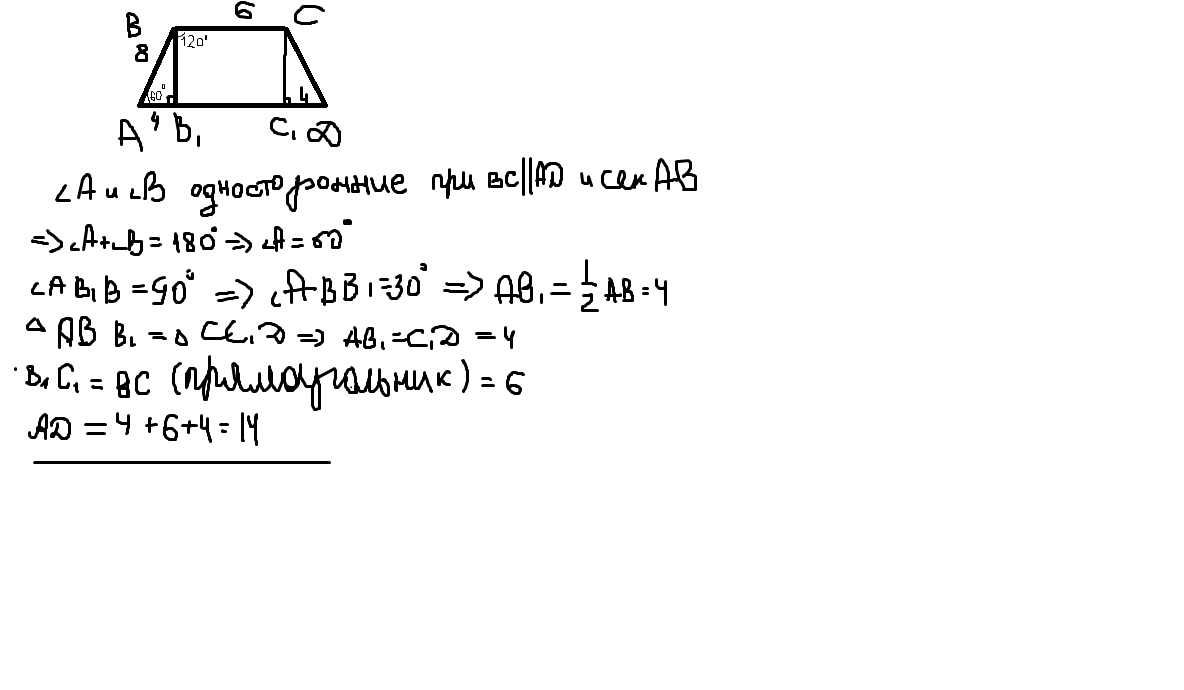 B 6 C
8 120°
60° 4
A 4 B₁ C₁ D
∠A и ∠B односторонние при BC||AD и сек AB
=> ∠A+∠B = 180° => ∠A = 60°
∠AB₁B = 90° => ∠ABB₁ = 30° => AB₁ = 1/2 AB = 4
△ ABB₁ = △ CC₁D => AB₁ = C₁D = 4
B₁C₁ = BC (прямоугольник) = 6
AD = 4 + 6 + 4 = 14